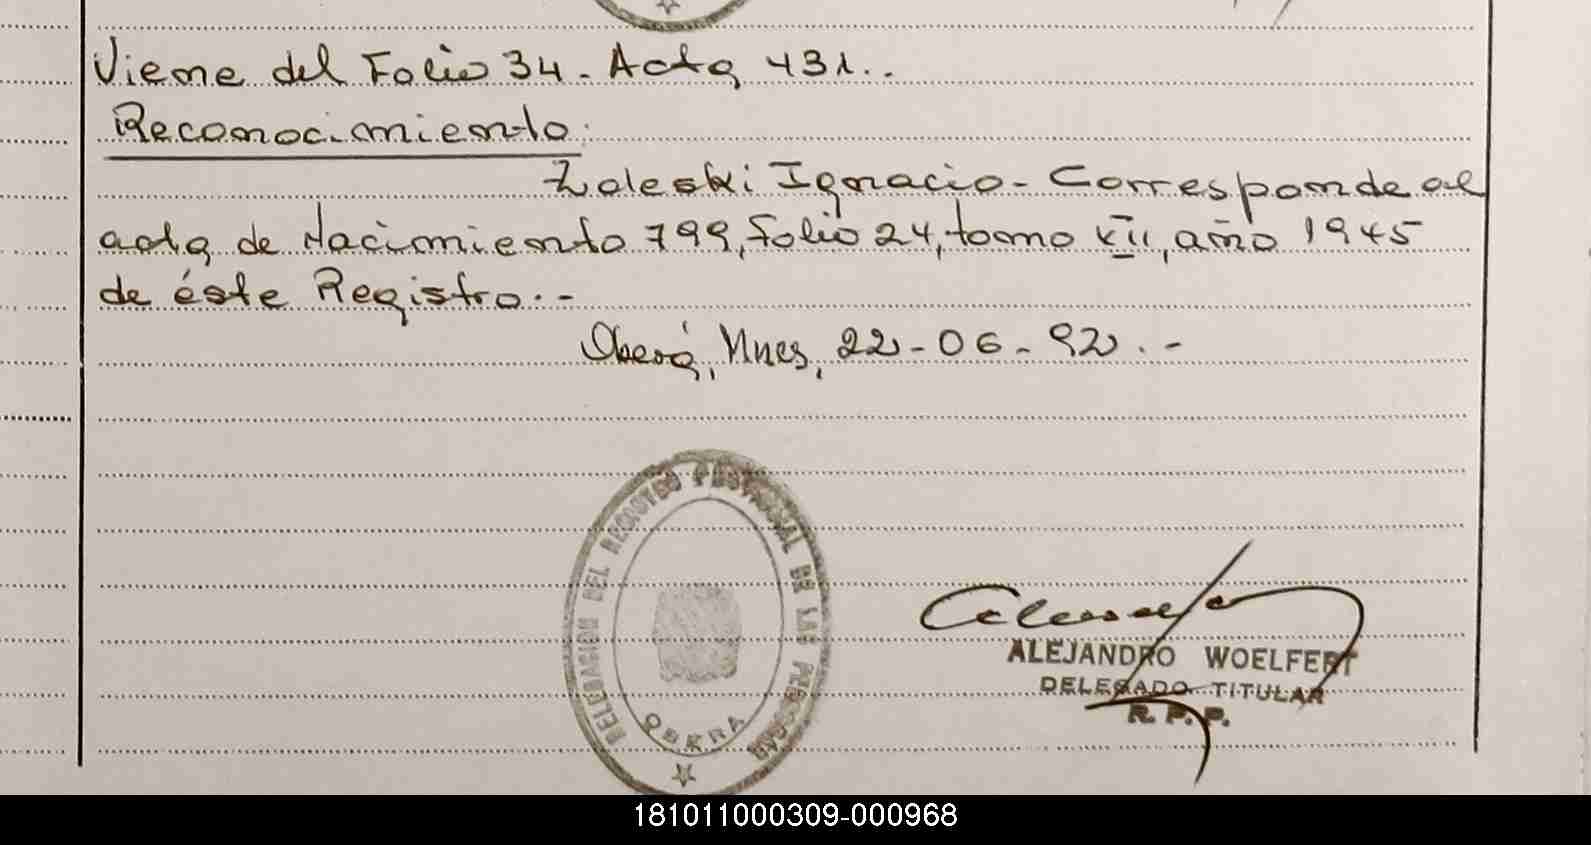 Viene del Folio 34. Acta 431..
Reconocimiento:
Zaleski Ignacio - Corresponde al
acta de Nacimiento 799, Folio 24, tomo XII, año 1945
de éste Registro. -
Oberá, Mnes, 22-06-92. -
DELEGACION DEL REGISTRO PROVINCIAL DE LAS PERSONAS
OBERA
ALEJANDRO WOELFERT
DELEGADO TITULAR
R. P. P.
181011000309-000968